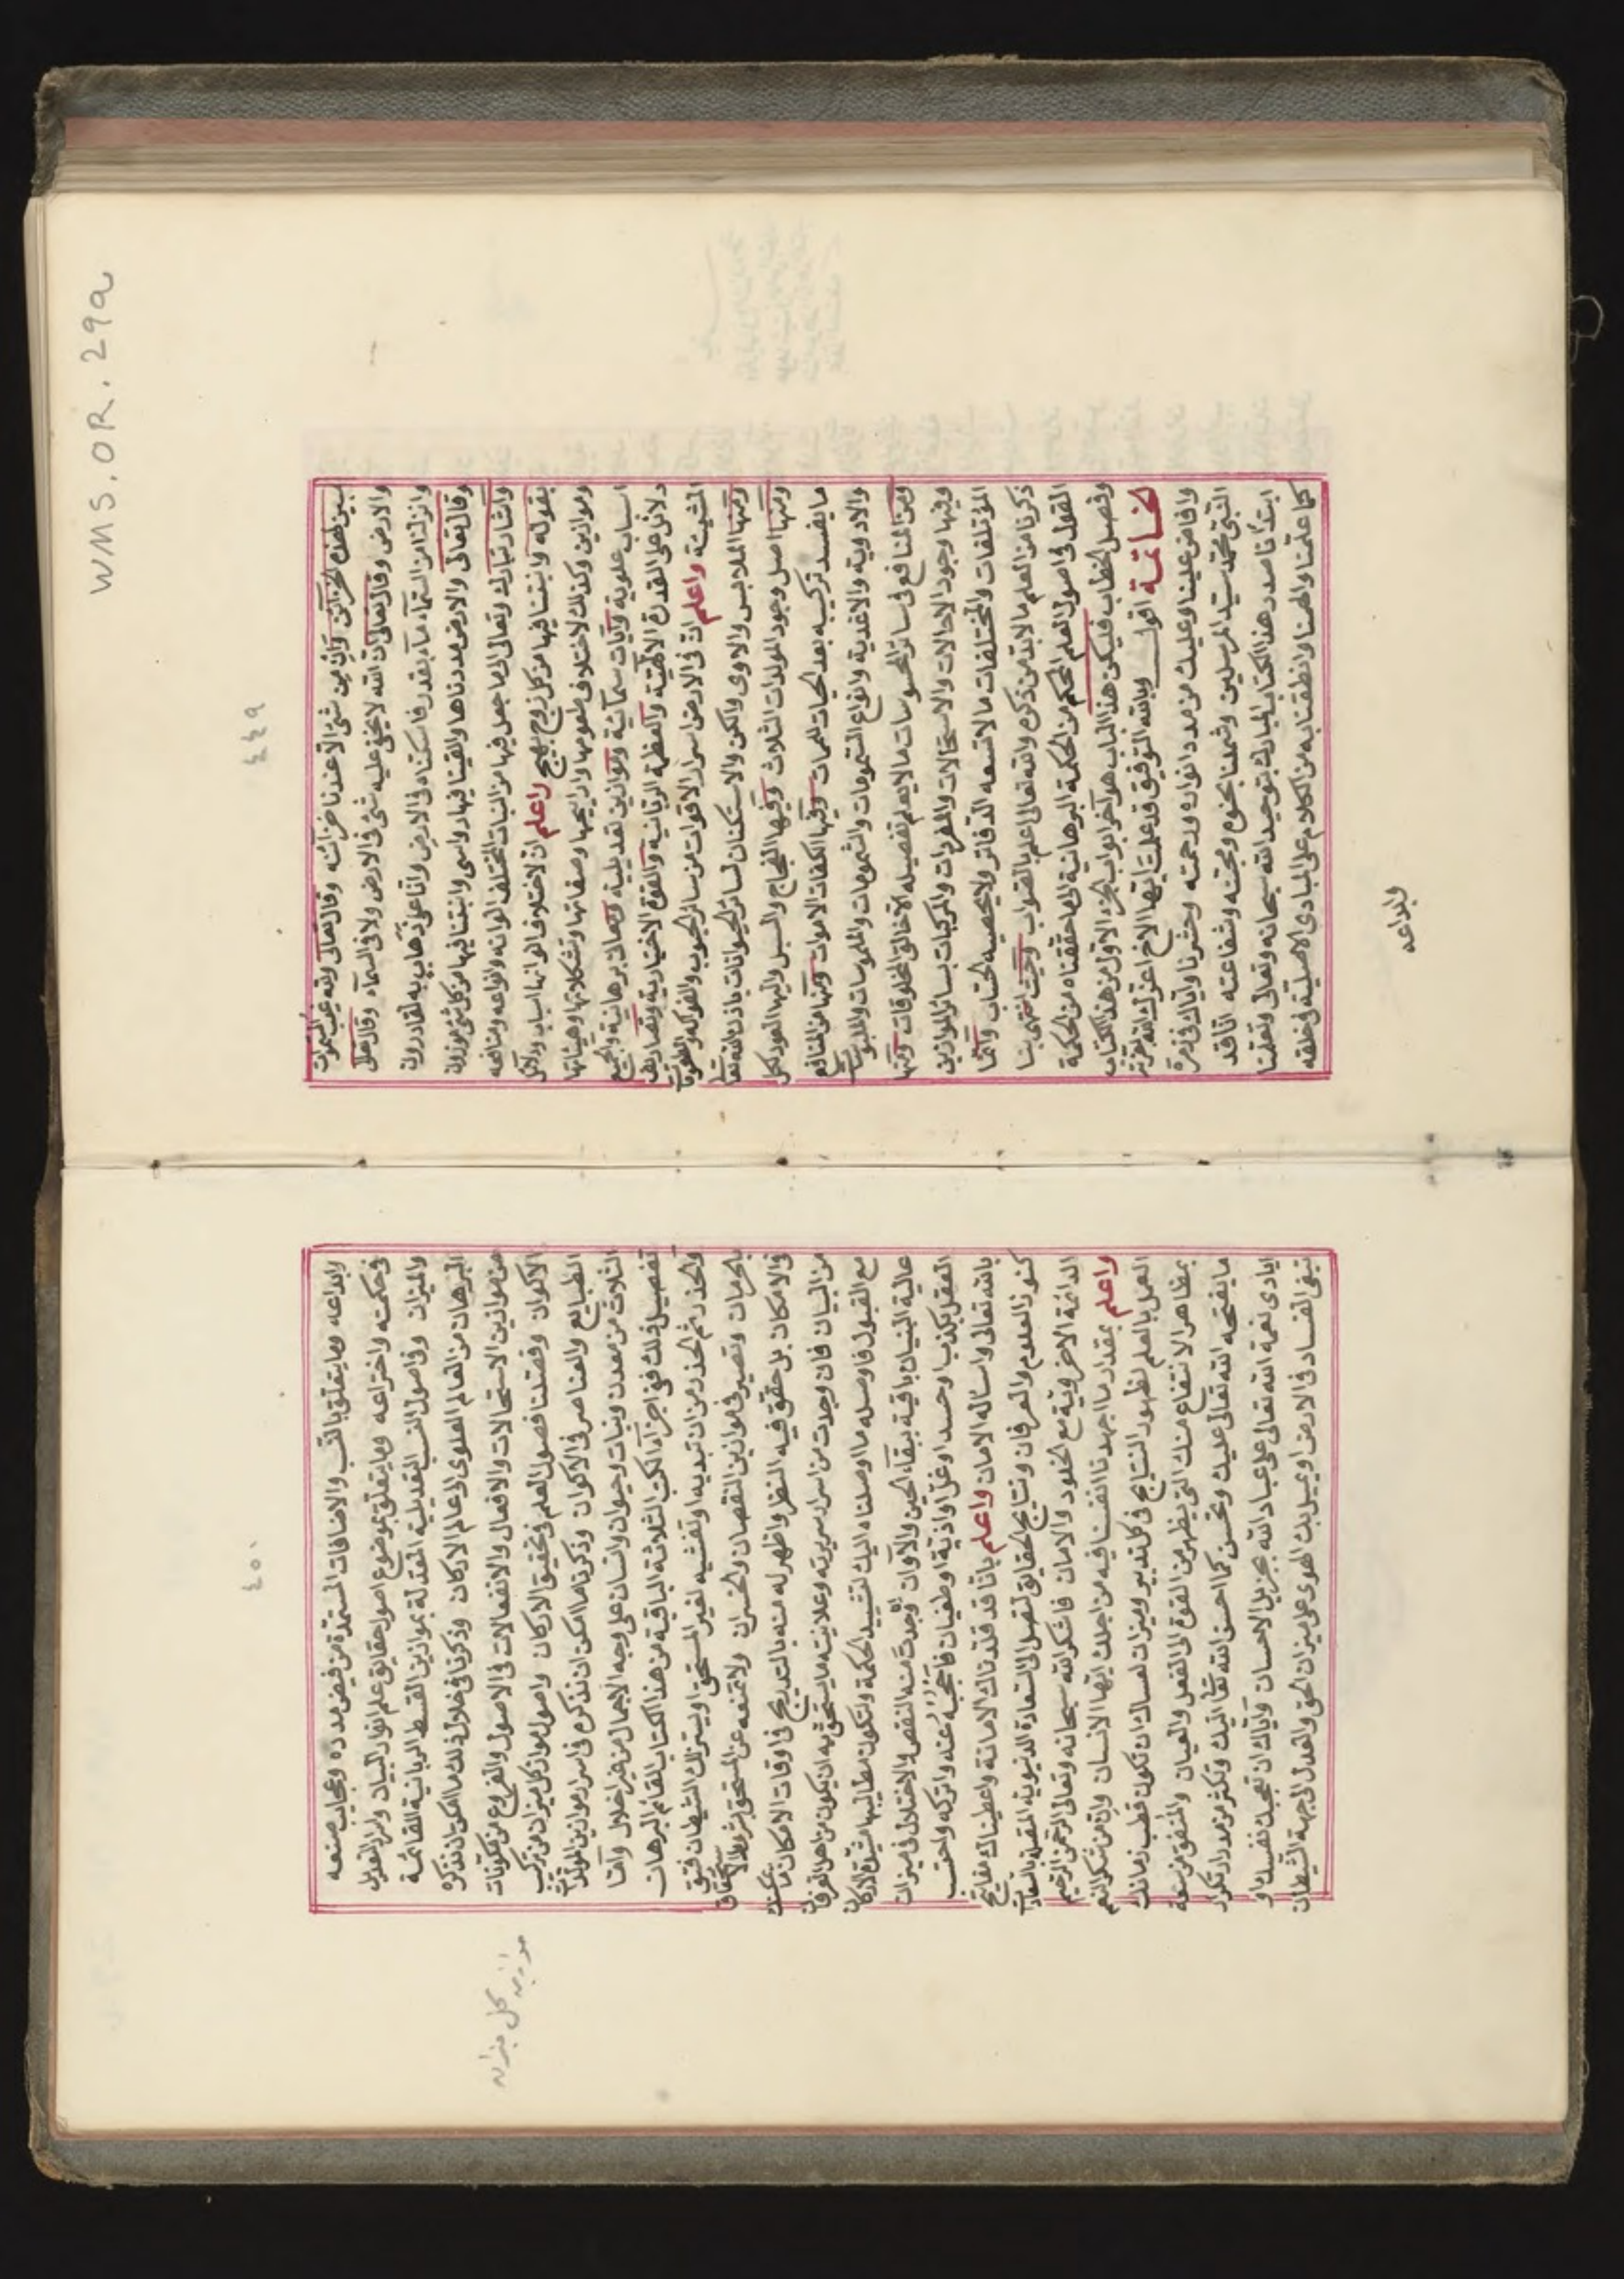 WMS. OR. 29a
٤٤٩
سبين هذه الخزائن وان من شئ الا عندنا خزائنه وقال تعالى ولله غيب السموات
والارض وقال تعالى ان الله لا يخفى عليه شئ فى الارض ولا فى السمآء وقال تعالى
وانزلنا من السمآء مآء بقدر فاسكناه فى الارض وانا على ذهاب به لقادرون
وقال تعالى والارض مددناها والقينا فيها رواسى وانبتنا فيها من كل شئ موزون
واشار تبارك وتعالى الى ما جعل فيها من النبات المختلف الوانه وانواعه ومنافعه
بقوله وانبتنا فيها من كل زوج بهيج واعلم ان لاختلاف الوانها اسباب ودلائل
وموازين وكذلك لاختلاف طعومها واراييحها وصفاتها وتشكلاتها وهيئاتها
اسباب علوية وآيات سمآئية وموازين تعديلية ومعانى برهانية والجميع
دلائل على القدرة الالهية والعظمة الربانية والقوة الاختيارية وتصاريف
المشيئة واعلم ان فى الارض اسرار الاقوات من سائر الحبوب والفواكه والمطعومات
ومنها الملابس والماوى والكن والاستكنان لسائر الحيوانات باذن الله تعالى
ومنها اصل وجود المولدات الثلاث وفيها الفجاج والسبل واليها المعود لكل
ما يفسد تركيبه بعد الحيات للممات وفيها الكفات الاموات ومنها من المنافع
والادوية والاغذية وانواع المشمومات والملموسات والملبوسات
ومن المنافع فى سائر المحسوسات ما لا يعلم تفصيله الا خالق المخلوقات ومنها
وفيها وجود الاحالات والاستحالات والمفردات والمركبات بسائر الموازين
المؤتلفات والمختلفات ما لا تسعه الدفاتر ولا يحصيه الحساب وانما
ذكرنا من العلم ما لا بد من ذكره والله تعالى اعلم بالصواب وحيث انتهى بنا
القول فى اصول العلم المحكم من الحكمة البرهانية الى ما حققناه من الحكمة
وفصل الخطاب فليكن هذا الباب هو آخر ابواب الجزء الاول من هذا الكتاب
خاتمة اقول وبالله التوفيق قد علمت ايها الاخ اعزك الله تعالى
وافاض علينا وعليك من مدد انواره ورحمته وحشرنا واياك فى زمرة
النبى محمد سيد المرسلين وشملنا بجنوح ومحبته وشفاعته اننا قد
ابتدأنا صدر هذا الكتاب المبارك بتوحيد الله سبحانه وتعالى وتعلمنا
كما علمنا والهمنا وانطقنا به من الكلام على المبادى الاصلية فى خلقه
وابداعه
٤٥٠
وابداعه وما يتعلق بالنسب والاضافات المستمدة من فيض مدده وعجايب صنعه
وحكمته واختراعه وما يتعلق بموضوع اصول حقايق علم انوار البيان واسرار التعديل
والميزان وفى اصول النسب التعديلية المعدلة بموازين القسط الربانية القائمة
البرهان من العالم العلوى الى عالم الاركان وذكرنا فى خلال ذلك ما امكن ان نذكره
من موازين الاستحالات والافعال والانفعالات فى الاصول والفروع من مكونات
الاكوان وفصلنا فصول العلم فى تحقيق الاركان واصول موازين كل ميزان من تركيب
الطبايع والعناصر فى الاكوان وذكرنا ما امكن ان نذكره فى اسرار موازين المولدات
الثلاث من معدن ونبات وحيوان وانسان على وجه الاجمال من غير اخلال واما
تفصيل ذلك ففى اجزآء الكتب الثلاثة الباقية من هذا الكتاب القائم البرهان
والحذر ثم الحذر من ان تبديه او تفشيه لغير المستحق او يستزلك الشيطان فتبق
بالحرمان وتصير فى موازين النقصان والخسران ولا تمنعه عن المستحق بشرط الاستحقاق
فى الامكان بل حقق فيه النظر واظهر له منه بالتدريج فى اوقات الامكان ما يمكنك
من البيان فان وجدت من اسرار سريرته وعلانيته ما يستحق به ان يكون من اهل العرفان
مع القبول فاوصله ما اوصلناه اليك لتشييد الحكمة وتكون مطالبها مشيدة الاركان
عالية البنيان باقية ببقآء الحين والاوان وان وجدت منه النقص والاختلال فى ميزان
العقل بكذب او حسد او غل او اذية او طغيان فاحجبه عنه واتركه واحتسب
بالله تعالى واساله الامان واعلم باننا قد قلدناك الامانة واعطيناك مفاتيح
كنوز العلوم والعرفان ونتايج الحقايق لتصل الى السعادة الدنيوية المقبلة بالسعادات
الدائمة الاخروية مع الخلود والامان فاشكر الله سبحانه وتعالى الرحمن الرحيم
واعلم بمقدار ما اجهدنا انفسنا فيه من اجلك ايها الانسان وان من شكر النعم
العمل بالعلم لظهور النتايج فى كل تدبير وميزان لعساك ان تكون قطب زمانك
بمظاهر الانتفاع منك التى يظهر من القوة الى الفعل والعيان والمنفق من سعة
ما يفتحه الله تعالى عليك وتحسن كما احسن الله تعالى اليك وتكثر من مدرار تكرار
ايادى نعمة الله تعالى على عباد الله بجزيل الاحسان واياك ان تعجبك نفسك او
تبغى الفساد فى الارض او يميل بك الهوى على ميزان الحق والعدل الى جهة الشيطان
موازين كل ميزان